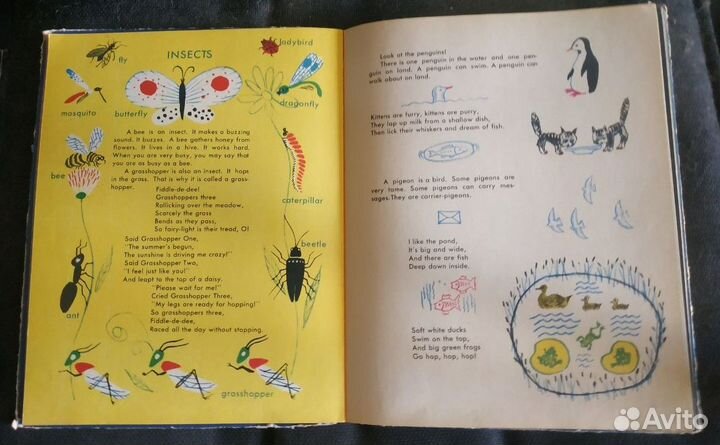 INSECTS
ladybird
fly
mosquito
butterfly
dragonfly
A bee is an insect. It makes a buzzing
sound. It buzzes. A bee gathers honey from
flowers. It lives in a hive. It works hard.
When you are very busy, you may say that
you are as busy as a bee.
A grasshopper is also an insect. It hops
in the grass. That is why it is called a grass-
hopper.
bee
caterpillar
Fiddle-de-dee!
Grasshoppers three
Rollicking over the meadow,
Scarcely the grass
Bends as they pass,
So fairy-light is their tread, O!
beetle
Said Grasshopper One,
"The summer's begun,
The sunshine is driving me crazy!"
Said Grasshopper Two,
"I feel just like you!"
And leapt to the top of a daisy.
"Please wait for me!"
Cried Grasshopper Three,
"My legs are ready for hopping!"
So grasshoppers three,
Fiddle-de-dee,
Raced all the day without stopping.
ant
grasshopper
Look at the penguins!
There is one penguin in the water and one pen-
guin on land. A penguin can swim. A penguin can
walk about on land.
Kittens are furry, kittens are purry,
They lap up milk from a shallow dish,
Then lick their whiskers and dream of fish.
A pigeon is a bird. Some pigeons are
very tame. Some pigeons can carry mes-
sages. They are carrier-pigeons.
I like the pond,
It's big and wide,
And there are fish
Deep down inside.
Soft white ducks
Swim on the top,
And big green frogs
Go hop, hop, hop!
Avito